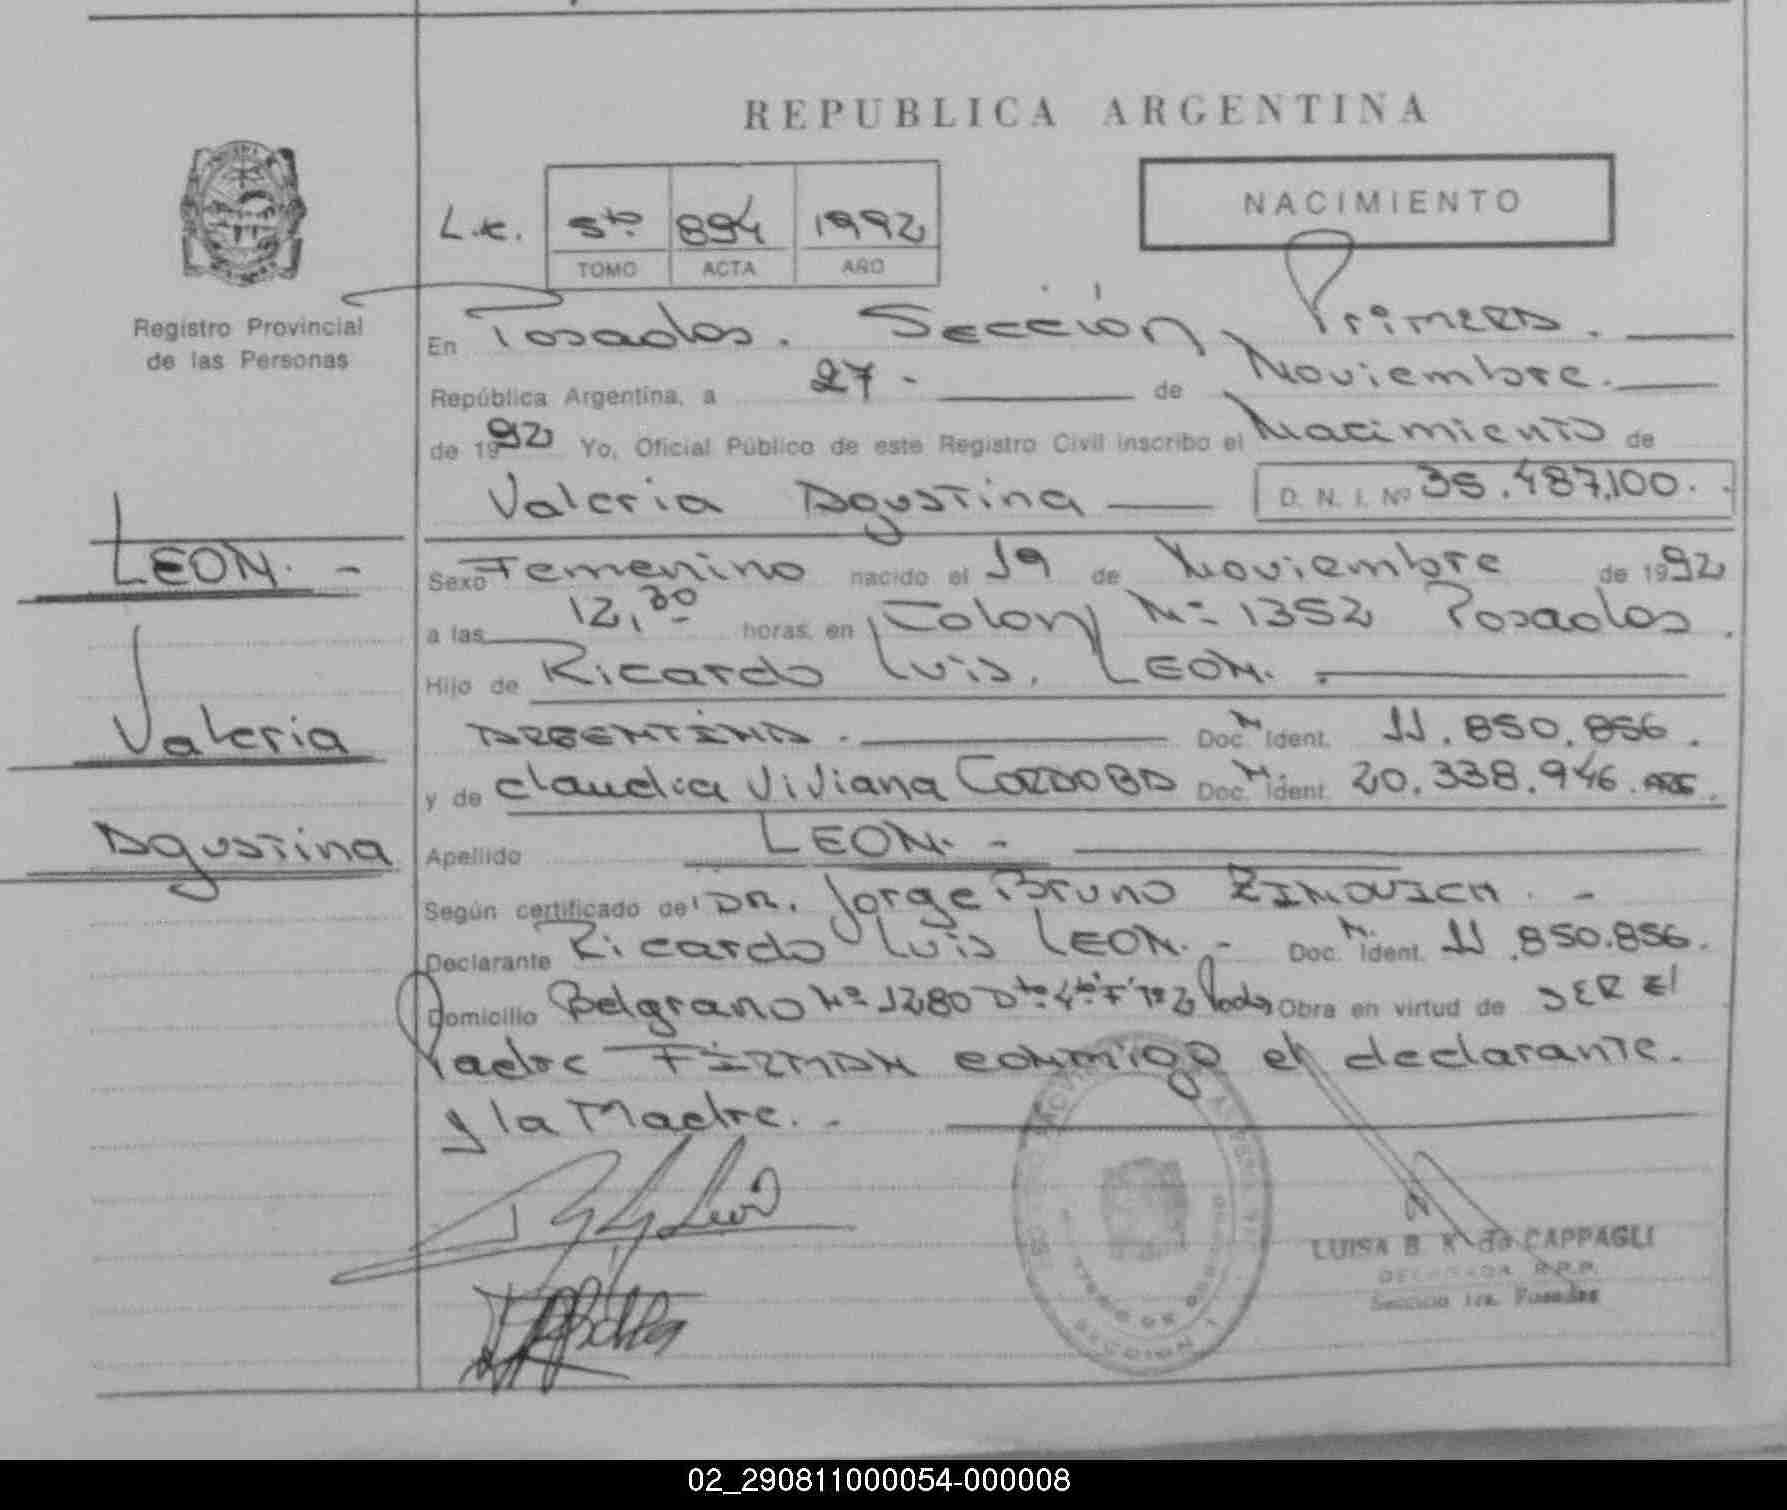 REPUBLICA ARGENTINA
NACIMIENTO
L.c. 5to. 894 1992
TOMO ACTA AÑO
Registro Provincial
de las Personas
En Posadas. Sección Primera.
República Argentina, a 27 - de Noviembre.
de 1992 Yo, Oficial Público de este Registro Civil inscribo el Nacimiento de
Valeria Agustina D. N. I. Nº 35.487.100.
LEON. -
Sexo Femenino nacido el 19 de Noviembre de 1992
a las 12,30 horas, en Colon Nº 1352 Posadas.
Hijo de Ricardo Luis, LEON.
Valeria
ARGENTINA. Doc. N. Ident. 11.850.856.
y de Claudia Viviana CORDOBA Doc. N. Ident. 20.338.946. ARG.
Agustina
Apellido LEON. -
Según certificado del DR. Jorge Bruno ZIMOVICH. -
Declarante Ricardo Luis LEON. - Doc. N. Ident. 11.850.856.
Domicilio Belgrano Nº 1280 Dto. Obra en virtud de SER El
Padre FIRMAN conmigo el declarante.
y la Madre. -
LUISA B. K. de CAPPAGLI
DELEGADA R.P.P.
Sección 1ra. Posadas
SECCION 1
02_290811000054-000008